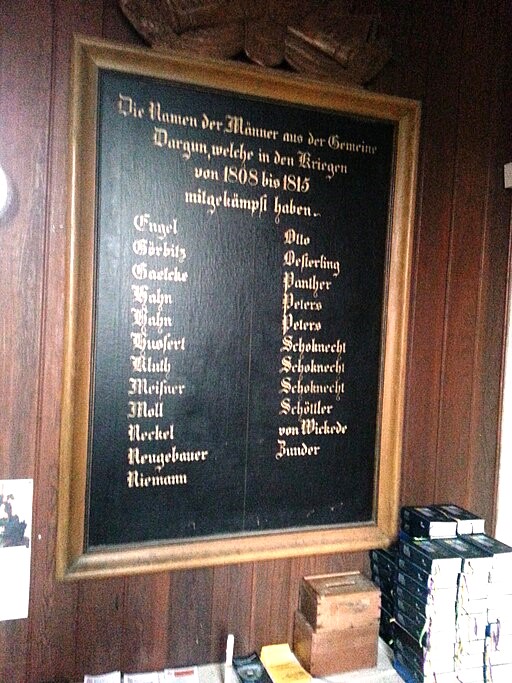 Die Namen der Männer aus der Gemeine
Dargun, welche in den Kriegen
von 1808 bis 1815
mitgekämpft haben.
Engel
Görbitz
Gaetcke
Hahn
Hahn
Hussert
Kluth
Meißner
Moll
Neckel
Neugebauer
Niemann
Otto
Oesterling
Panther
Peters
Peters
Schoknecht
Schoknecht
Schoknecht
Schöttler
von Wickede
Zunder